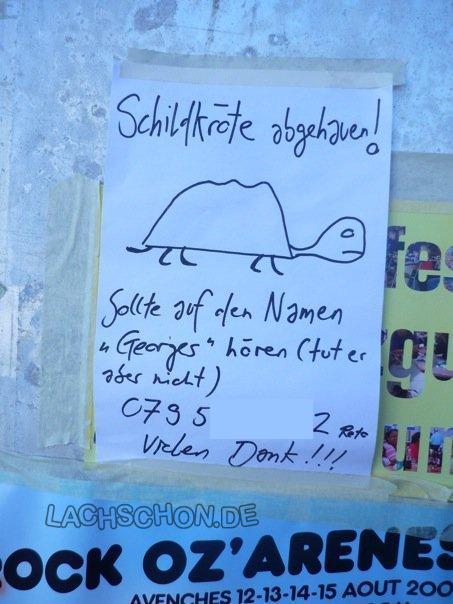 Schildkröte abgehauen!
Sollte auf den Namen
„Georges" hören (tut er
aber nicht)
0795 2 Reto
Vielen Dank!!!
fes
gu
un
LACHSCHON.DE
ROCK OZ'ARENES
AVENCHES 12-13-14-15 AOUT 200